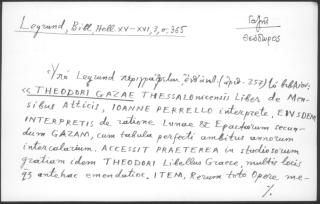 Legrand, Bibl. Hell. XV–XXI, 3, σ. 365
Γαζῆ
Θεόδωρος
Ὑπὸ Legrand περιγράφεται (ἀριθ. 257) τὸ βιβλίον:
« THEODORI GAZAE THESSALONICENSIS Liber de Men-
sibus Atticis, IOANNE PERRELLO interprete, EIVSDEM
INTERPRETIS de ratione Lunae & Epactarum secun-
dum GAZAM, cum tabula perfecti ambitus annorum
intercalarium. ACCESSIT PRAETEREA in studiosorum
gratiam idem THEODORI Libellus Graece, multis locis
q3 antehac emendatior. ITEM, Rerum toto Opere me-
./.